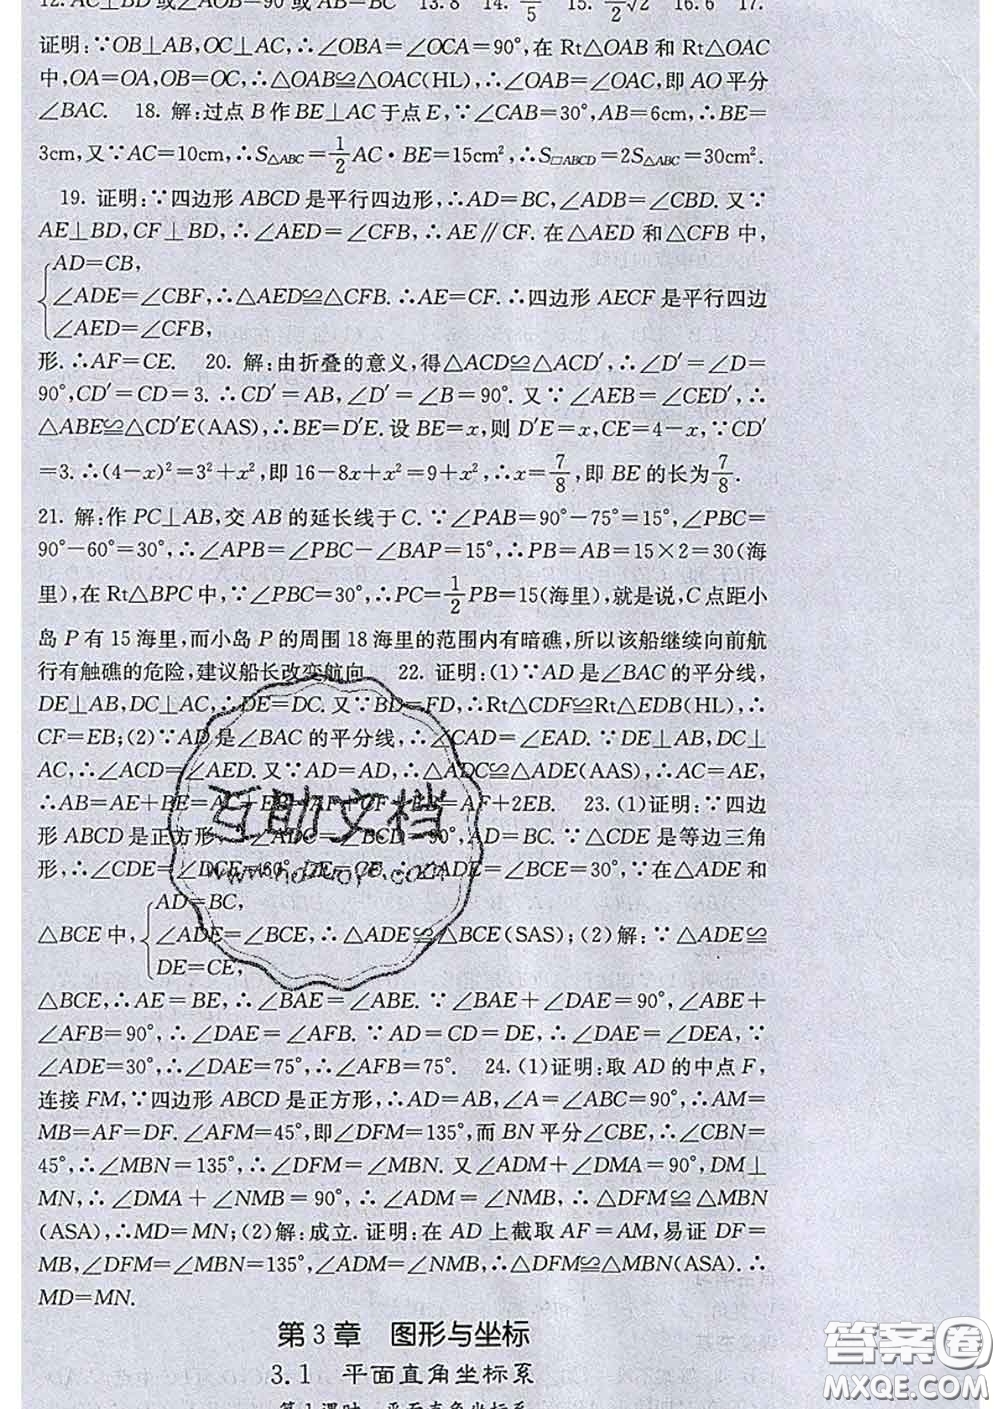 12. AC⊥BD 或∠AOB=90°或 AB=BC 13. 8 14. 5 15. 2√2 16. 6 17.
证明:∵OB⊥AB,OC⊥AC,∴∠OBA=∠OCA=90°,在 Rt△OAB 和 Rt△OAC
中,OA=OA,OB=OC,∴△OAB≌△OAC(HL),∴∠OAB=∠OAC,即 AO 平分
∠BAC. 18. 解:过点 B 作 BE⊥AC 于点 E,∵∠CAB=30°,AB=6cm,∴BE=
3cm,又∵AC=10cm,∴S△ABC=1/2AC·BE=15cm²,∴S□ABCD=2S△ABC=30cm².
19. 证明:∵四边形 ABCD 是平行四边形,∴AD=BC,∠ADB=∠CBD. 又∵
AE⊥BD,CF⊥BD,∴∠AED=∠CFB,∴AE∥CF. 在△AED 和△CFB 中,
AD=CB,
∠ADE=∠CBF,∴△AED≌△CFB. ∴AE=CF. ∴四边形 AECF 是平行四边
∠AED=∠CFB,
形. ∴AF=CE. 20. 解:由折叠的意义,得△ACD≌△ACD′,∴∠D′=∠D=
90°,CD′=CD=3. ∴CD′=AB,∠D′=∠B=90°. 又∵∠AEB=∠CED′,∴
△ABE≌△CD′E(AAS),∴BE=D′E. 设 BE=x,则 D′E=x,CE=4-x,∵CD′
=3. ∴(4-x)²=3²+x²,即 16-8x+x²=9+x²,∴x=7/8,即 BE 的长为7/8.
21. 解:作 PC⊥AB,交 AB 的延长线于 C. ∵∠PAB=90°-75°=15°,∠PBC=
90°-60°=30°,∴∠APB=∠PBC-∠BAP=15°,∴PB=AB=15×2=30(海
里),在 Rt△BPC 中,∵∠PBC=30°,∴PC=1/2PB=15(海里),就是说,C 点距小
岛 P 有 15 海里,而小岛 P 的周围 18 海里的范围内有暗礁,所以该船继续向前航
行有触礁的危险,建议船长改变航向. 22. 证明:(1)∵AD 是∠BAC 的平分线,
DE⊥AB,DC⊥AC,∴DE=DC. 又∵BD=FD,∴Rt△CDF≌Rt△EDB(HL),∴
CF=EB;(2)∵AD 是∠BAC 的平分线,∴∠CAD=∠EAD. ∵DE⊥AB,DC⊥
AC,∴∠ACD=∠AED. 又∵AD=AD,∴△ADC≌△ADE(AAS),∴AC=AE,
∴AB=AE+BE=AC+EB=AF+CF+EB=AF+2EB. 23. (1)证明:∵四边
形 ABCD 是正方形,∴∠ADC=∠BCD=90°,AD=BC. ∵△CDE 是等边三角
形,∴∠CDE=∠DCE=60°,DE=CE,∴∠ADE=∠BCE. ∵在△ADE 和
AD=BC,
△BCE 中,∠ADE=∠BCE,∴△ADE≌△BCE(SAS);(2)解:∵△ADE≌
DE=CE,
△BCE,∴AE=BE,∴∠BAE=∠ABE. ∵∠BAE+∠DAE=90°,∠ABE+
∠AFB=90°,∴∠DAE=∠AFB. ∵AD=CD=DE,∴∠DAE=∠DEA,∵
∠ADE=30°,∴∠DAE=75°,∴∠AFB=75°. 24. (1)证明:取 AD 的中点 F,
连接 FM,∵四边形 ABCD 是正方形,∴AD=AB,∠A=∠ABC=90°,∴AM=
MB=AF=DF. ∠AFM=45°,即∠DFM=135°,而 BN 平分∠CBE,∴∠CBN=
45°,∴∠MBN=135°,∴∠DFM=∠MBN. 又∠ADM+∠DMA=90°,DM⊥
MN,∴∠DMA+∠NMB=90°,∴∠ADM=∠NMB,∴△DFM≌△MBN
(ASA),∴MD=MN;(2)解:成立. 证明:在 AD 上截取 AF=AM,易证 DF=
MB,∠DFM=∠MBN=135°,∠ADM=∠NMB,∴△DFM≌△MBN(ASA). ∴
MD=MN.
第 3 章 图形与坐标
3.1 平面直角坐标系
第 1 课时 平面直角坐标系
互助文档
答案圈
MXQE.COM